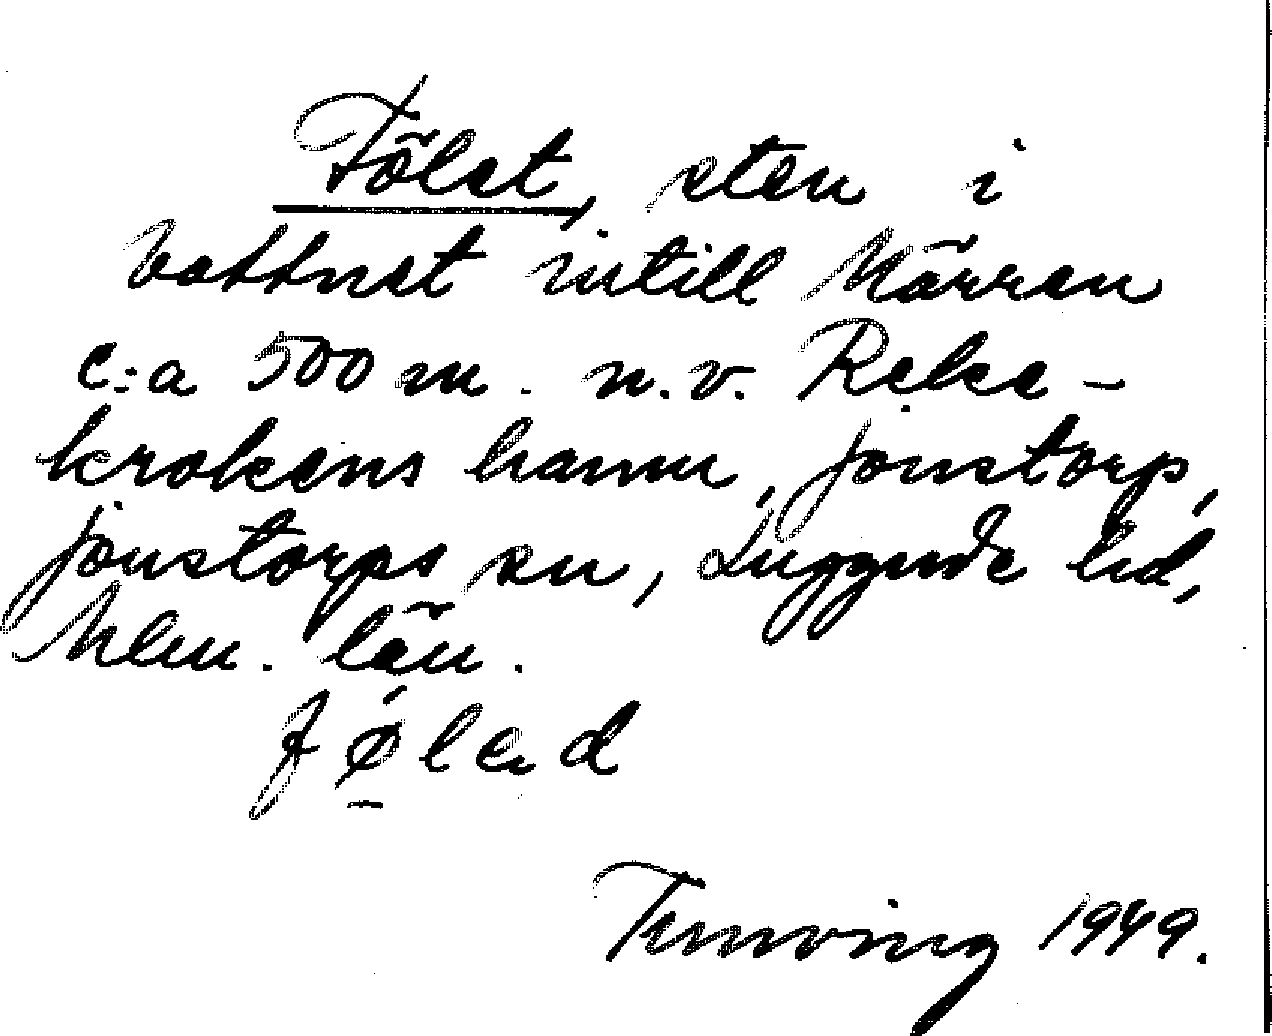 Fölet, sten i
vattnet intill Märren
c:a 500 m. n.v. Reke-
krokens hamn, Jonstorp,
Jonstorps sn, Luggude hd,
Mlm. län.
fǿ̱led
Ternving 1949.